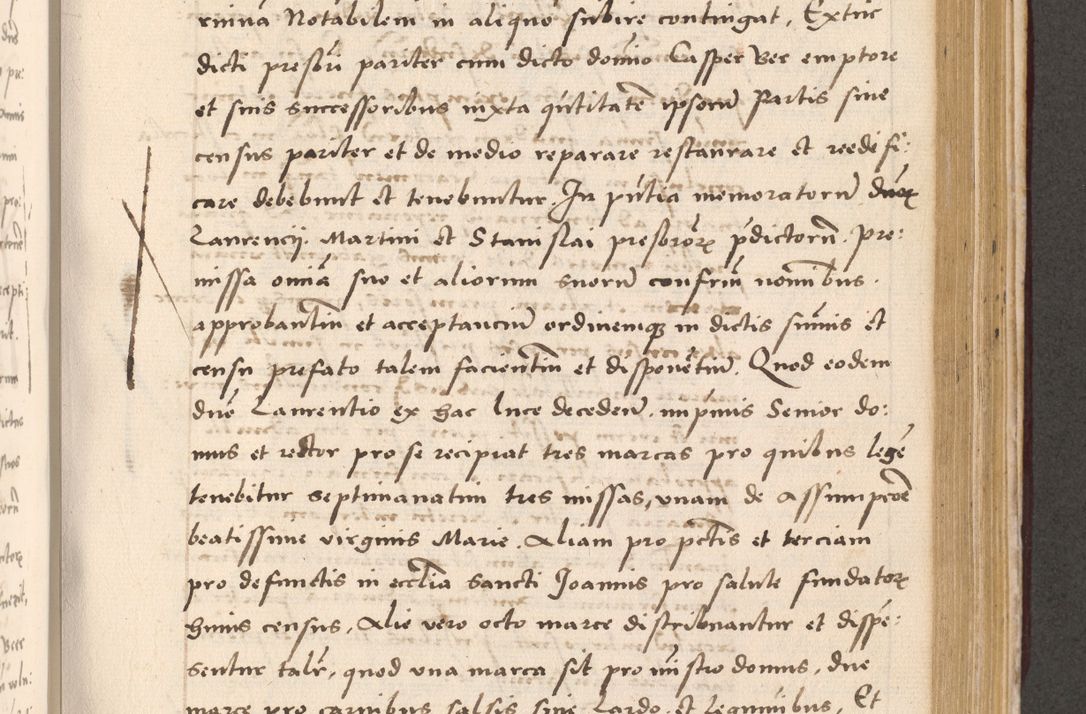 ruinã Notabilem in aliquo subire contingat, Extūc
dicti presbrī pariter cum dicto domīo Casper Ber emptore
et suis successoribus iuxta qūtitatē ipsorū Partis sive
census pariter et de medio reparare restaurare et reedifi:
care debebunt et tenebuntur. In pn̄tia memoratorū duoꝝ
Laurencij. Martini et Stanislai presbrōꝝ p̄dictorū. pre:
missa omīa suo et aliorum suorū confrūm nomībus.
approbantiū et acceptanciū ordinemqꝫ in dictis sūmis et
censu prefato talem facientiū et disponētiū. Quod eodem
dn̄o Laurentio ex hac luce decedeñ. inprimis Senior do:
mus et rector pro se recipiat tres marcas pro quibus legē
tenebitur septimanatim tres missas, unam de Assumpcōē
beatissime virginis Marie. Aliam pro pctīs et terciam
pro defunctis in eccl̄ia Sancti Joannis pro salute fundatoꝝ
huius census, Alie vero octo marce distribuantur et dispē:
sentur talr̄, quod una marca sit pro mīstro domus, due
marce pro carnibus salsis sive Lardo et leguminibus, Et